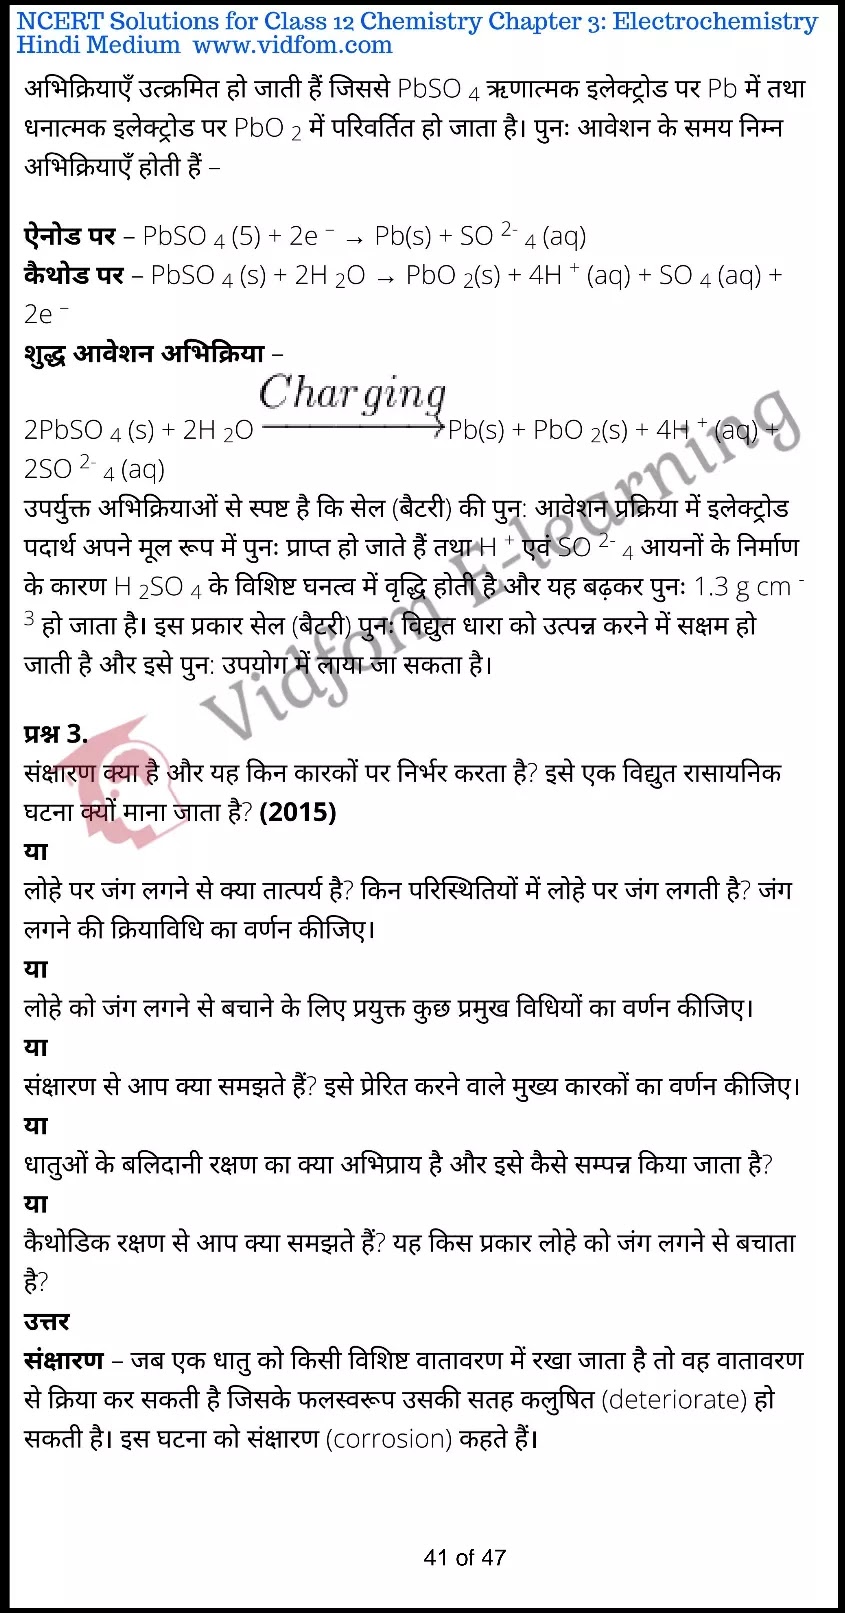 NCERT Solutions for Class 12 Chemistry Chapter 3: Electrochemistry
Hindi Medium www.vidfom.com
अभिक्रियाएँ उत्क्रमित हो जाती हैं जिससे PbSO 4 ऋणात्मक इलेक्ट्रोड पर Pb में तथा
धनात्मक इलेक्ट्रोड पर PbO 2 में परिवर्तित हो जाता है। पुनः आवेशन के समय निम्न
अभिक्रियाएँ होती हैं –
ऐनोड पर – PbSO 4 (5) + 2e – → Pb(s) + SO 2- 4 (aq)
कैथोड पर – PbSO 4 (s) + 2H 2O → PbO 2(s) + 4H + (aq) + SO 4 (aq) +
2e –
शुद्ध आवेशन अभिक्रिया –
Charging
2PbSO 4 (s) + 2H 2O ⟶ Pb(s) + PbO 2(s) + 4H + (aq) +
2SO 2- 4 (aq)
उपर्युक्त अभिक्रियाओं से स्पष्ट है कि सेल (बैटरी) की पुन: आवेशन प्रक्रिया में इलेक्ट्रोड
पदार्थ अपने मूल रूप में पुनः प्राप्त हो जाते हैं तथा H + एवं SO 2- 4 आयनों के निर्माण
के कारण H 2SO 4 के विशिष्ट घनत्व में वृद्धि होती है और यह बढ़कर पुनः 1.3 g cm -
3 हो जाता है। इस प्रकार सेल (बैटरी) पुनः विद्युत धारा को उत्पन्न करने में सक्षम हो
जाती है और इसे पुन: उपयोग में लाया जा सकता है।
Vidfom E-learning
प्रश्न 3.
संक्षारण क्या है और यह किन कारकों पर निर्भर करता है? इसे एक विद्युत रासायनिक
घटना क्यों माना जाता है? (2015)
या
लोहे पर जंग लगने से क्या तात्पर्य है? किन परिस्थितियों में लोहे पर जंग लगती है? जंग
लगने की क्रियाविधि का वर्णन कीजिए।
या
लोहे को जंग लगने से बचाने के लिए प्रयुक्त कुछ प्रमुख विधियों का वर्णन कीजिए।
या
संक्षारण से आप क्या समझते हैं? इसे प्रेरित करने वाले मुख्य कारकों का वर्णन कीजिए।
या
धातुओं के बलिदानी रक्षण का क्या अभिप्राय है और इसे कैसे सम्पन्न किया जाता है?
या
कैथोडिक रक्षण से आप क्या समझते हैं? यह किस प्रकार लोहे को जंग लगने से बचाता
है?
उत्तर
संक्षारण – जब एक धातु को किसी विशिष्ट वातावरण में रखा जाता है तो वह वातावरण
से क्रिया कर सकती है जिसके फलस्वरूप उसकी सतह कलुषित (deteriorate) हो
सकती है। इस घटना को संक्षारण (corrosion) कहते हैं।
41 of 47